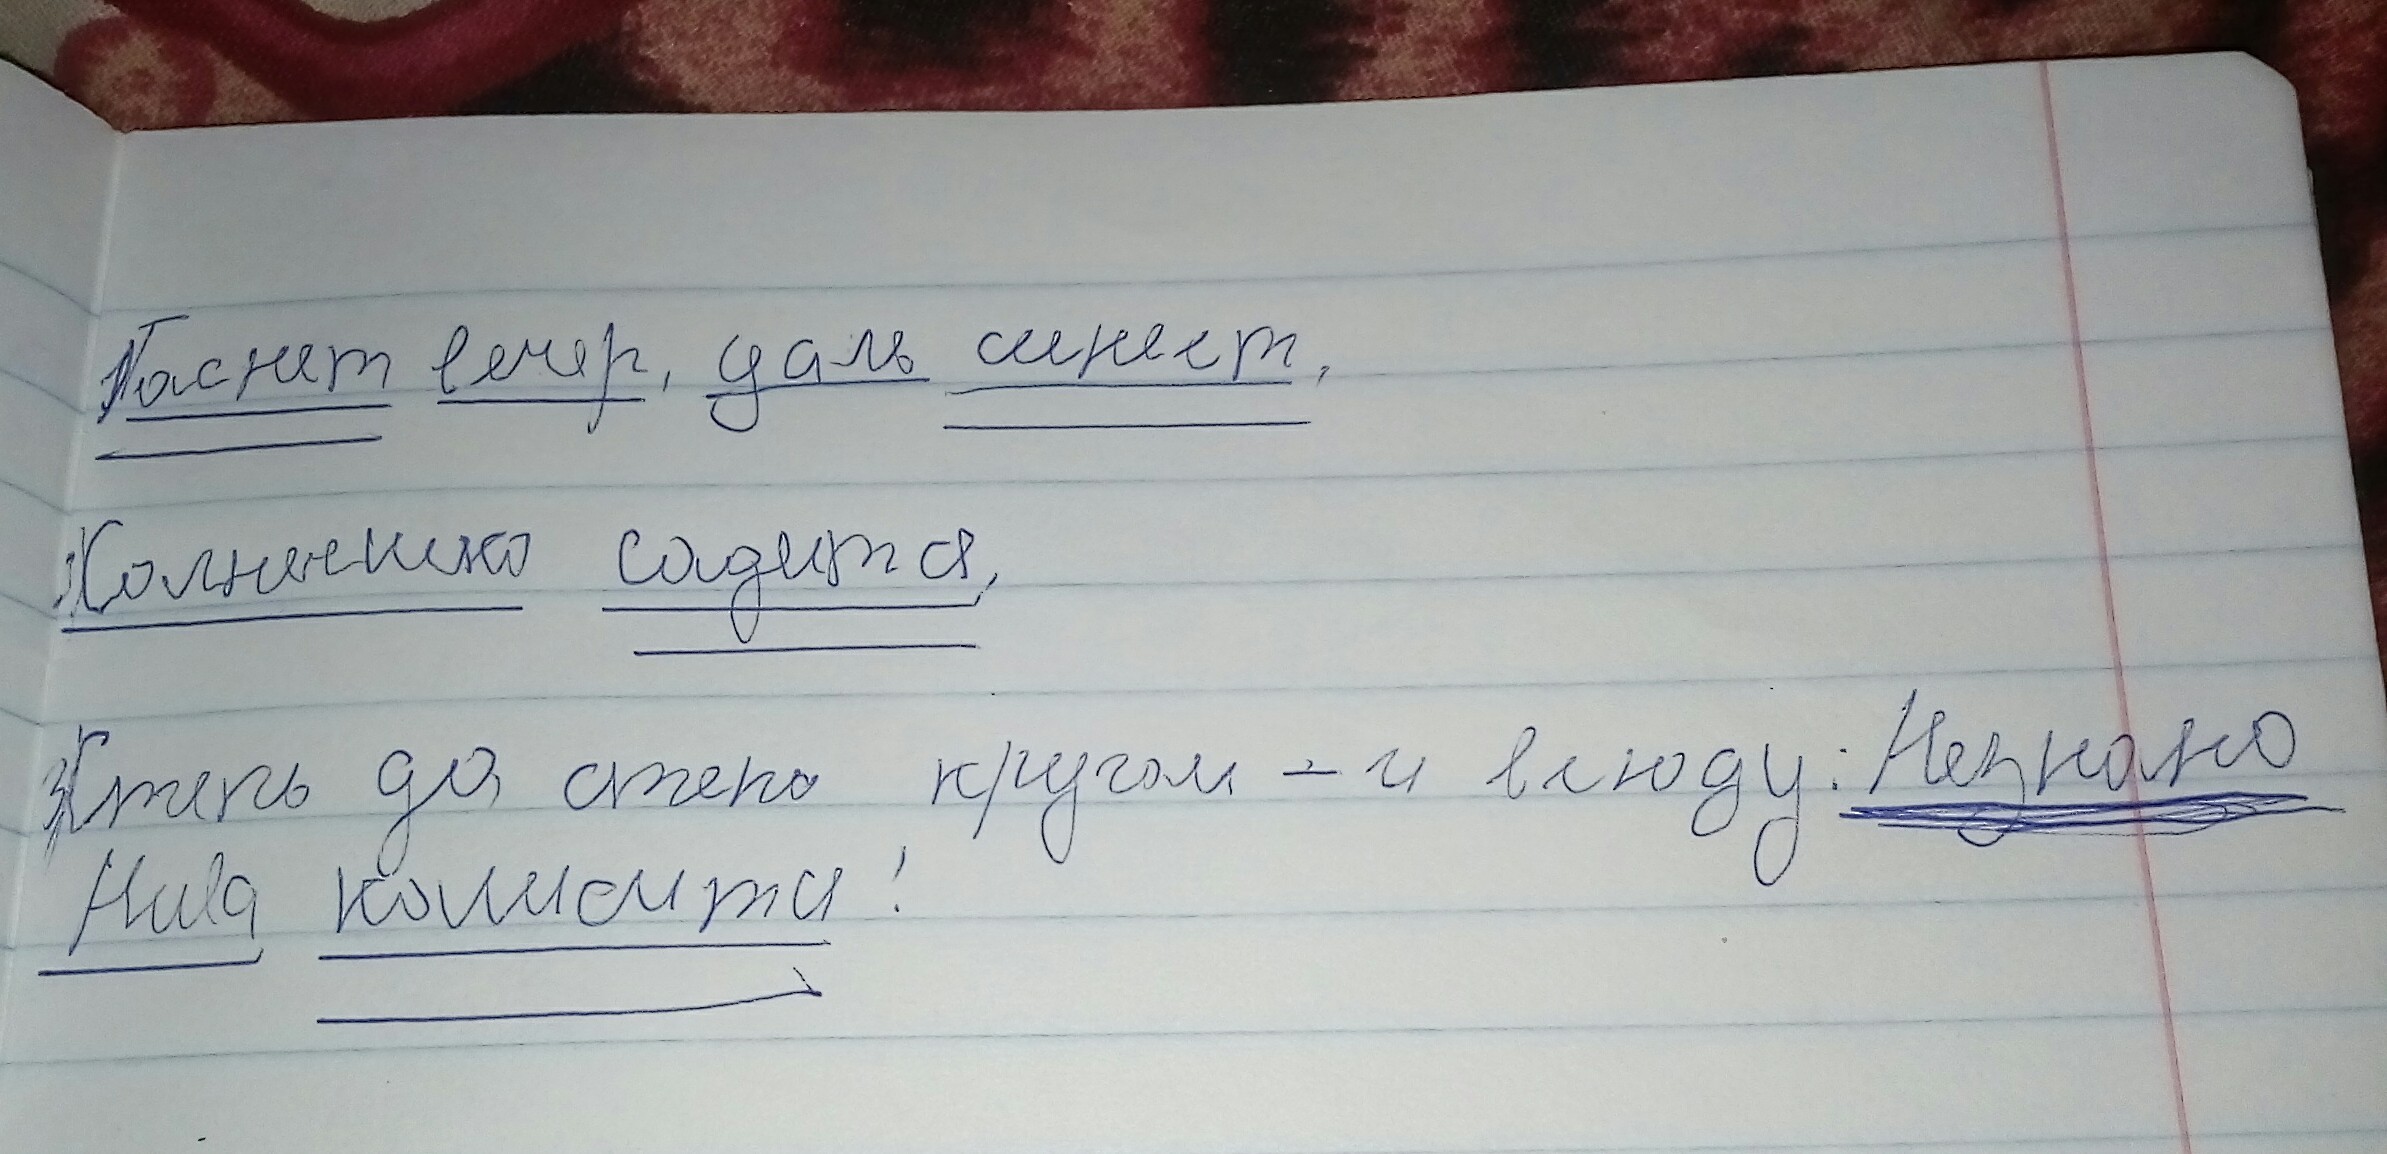 Гаснет вечер, даль синеет,
Солнышко садится,
Степь да степь кругом - и всюду: Незнано
Нива колосится!